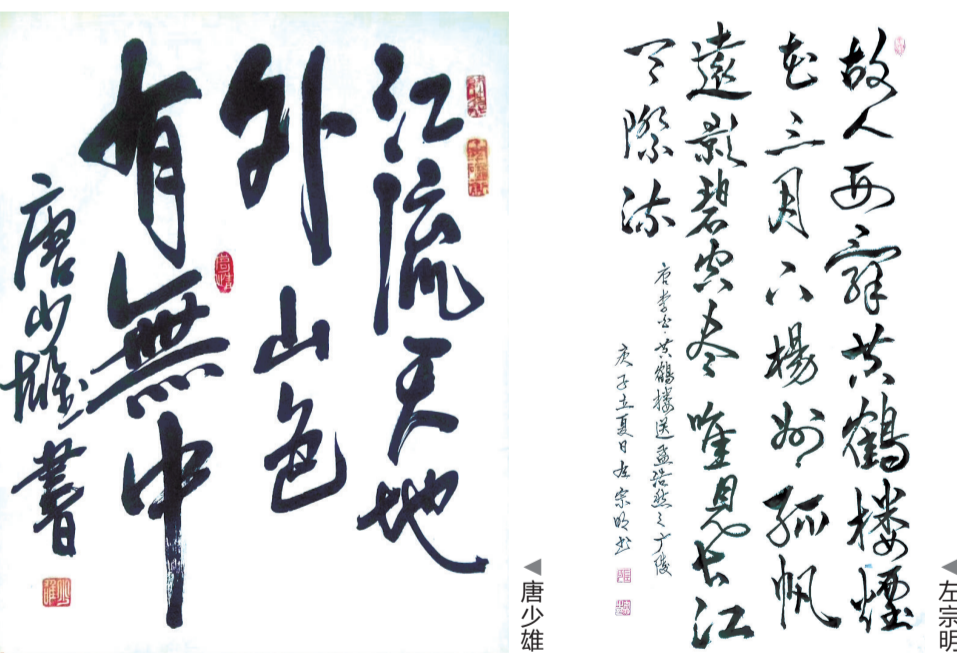 江流天地
外山色
有無中
唐少雄書
◀唐少雄
故人西辭黄鶴楼煙
花三月下楊州孤帆
遠影碧空尽唯見長江
天際流
唐李白·黄鶴楼送孟浩然之广陵
庚子立夏日左宗明书
◀左宗明